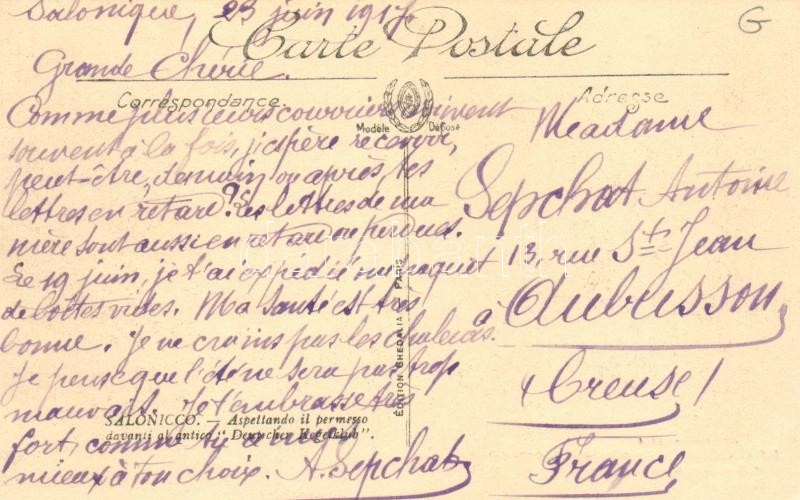 Salonique, 23 juin 1917
G
Carte Postale
Grande Chérie.
Correspondance
Modèle Déposé
Adresse
Comme plusieurs courriers arrivent
souvent à la fois, j'espère recevoir,
peut-être, demain ou après, tes
lettres en retard? Les lettres de ma
mère sont aussi en retard ou perdues.
Le 19 juin, je t'ai expédié un paquet
de boîtes vides. Ma santé est très
bonne. Je ne crains pas les chaleurs.
Je pense que l'été ne sera pas trop
mauvais. Je t'embrasse très
fort, comme tu
mieux à ton choix. A. Sepchat
SALONICCO. — Aspettando il permesso
davanti al antico "Deutscher Kegelklub".
ÉDITION GHEDALIA PARIS
Madame
Sepchat Antoine
13, rue St-Jean
à Aubusson
(Creuse)
France
darabanth